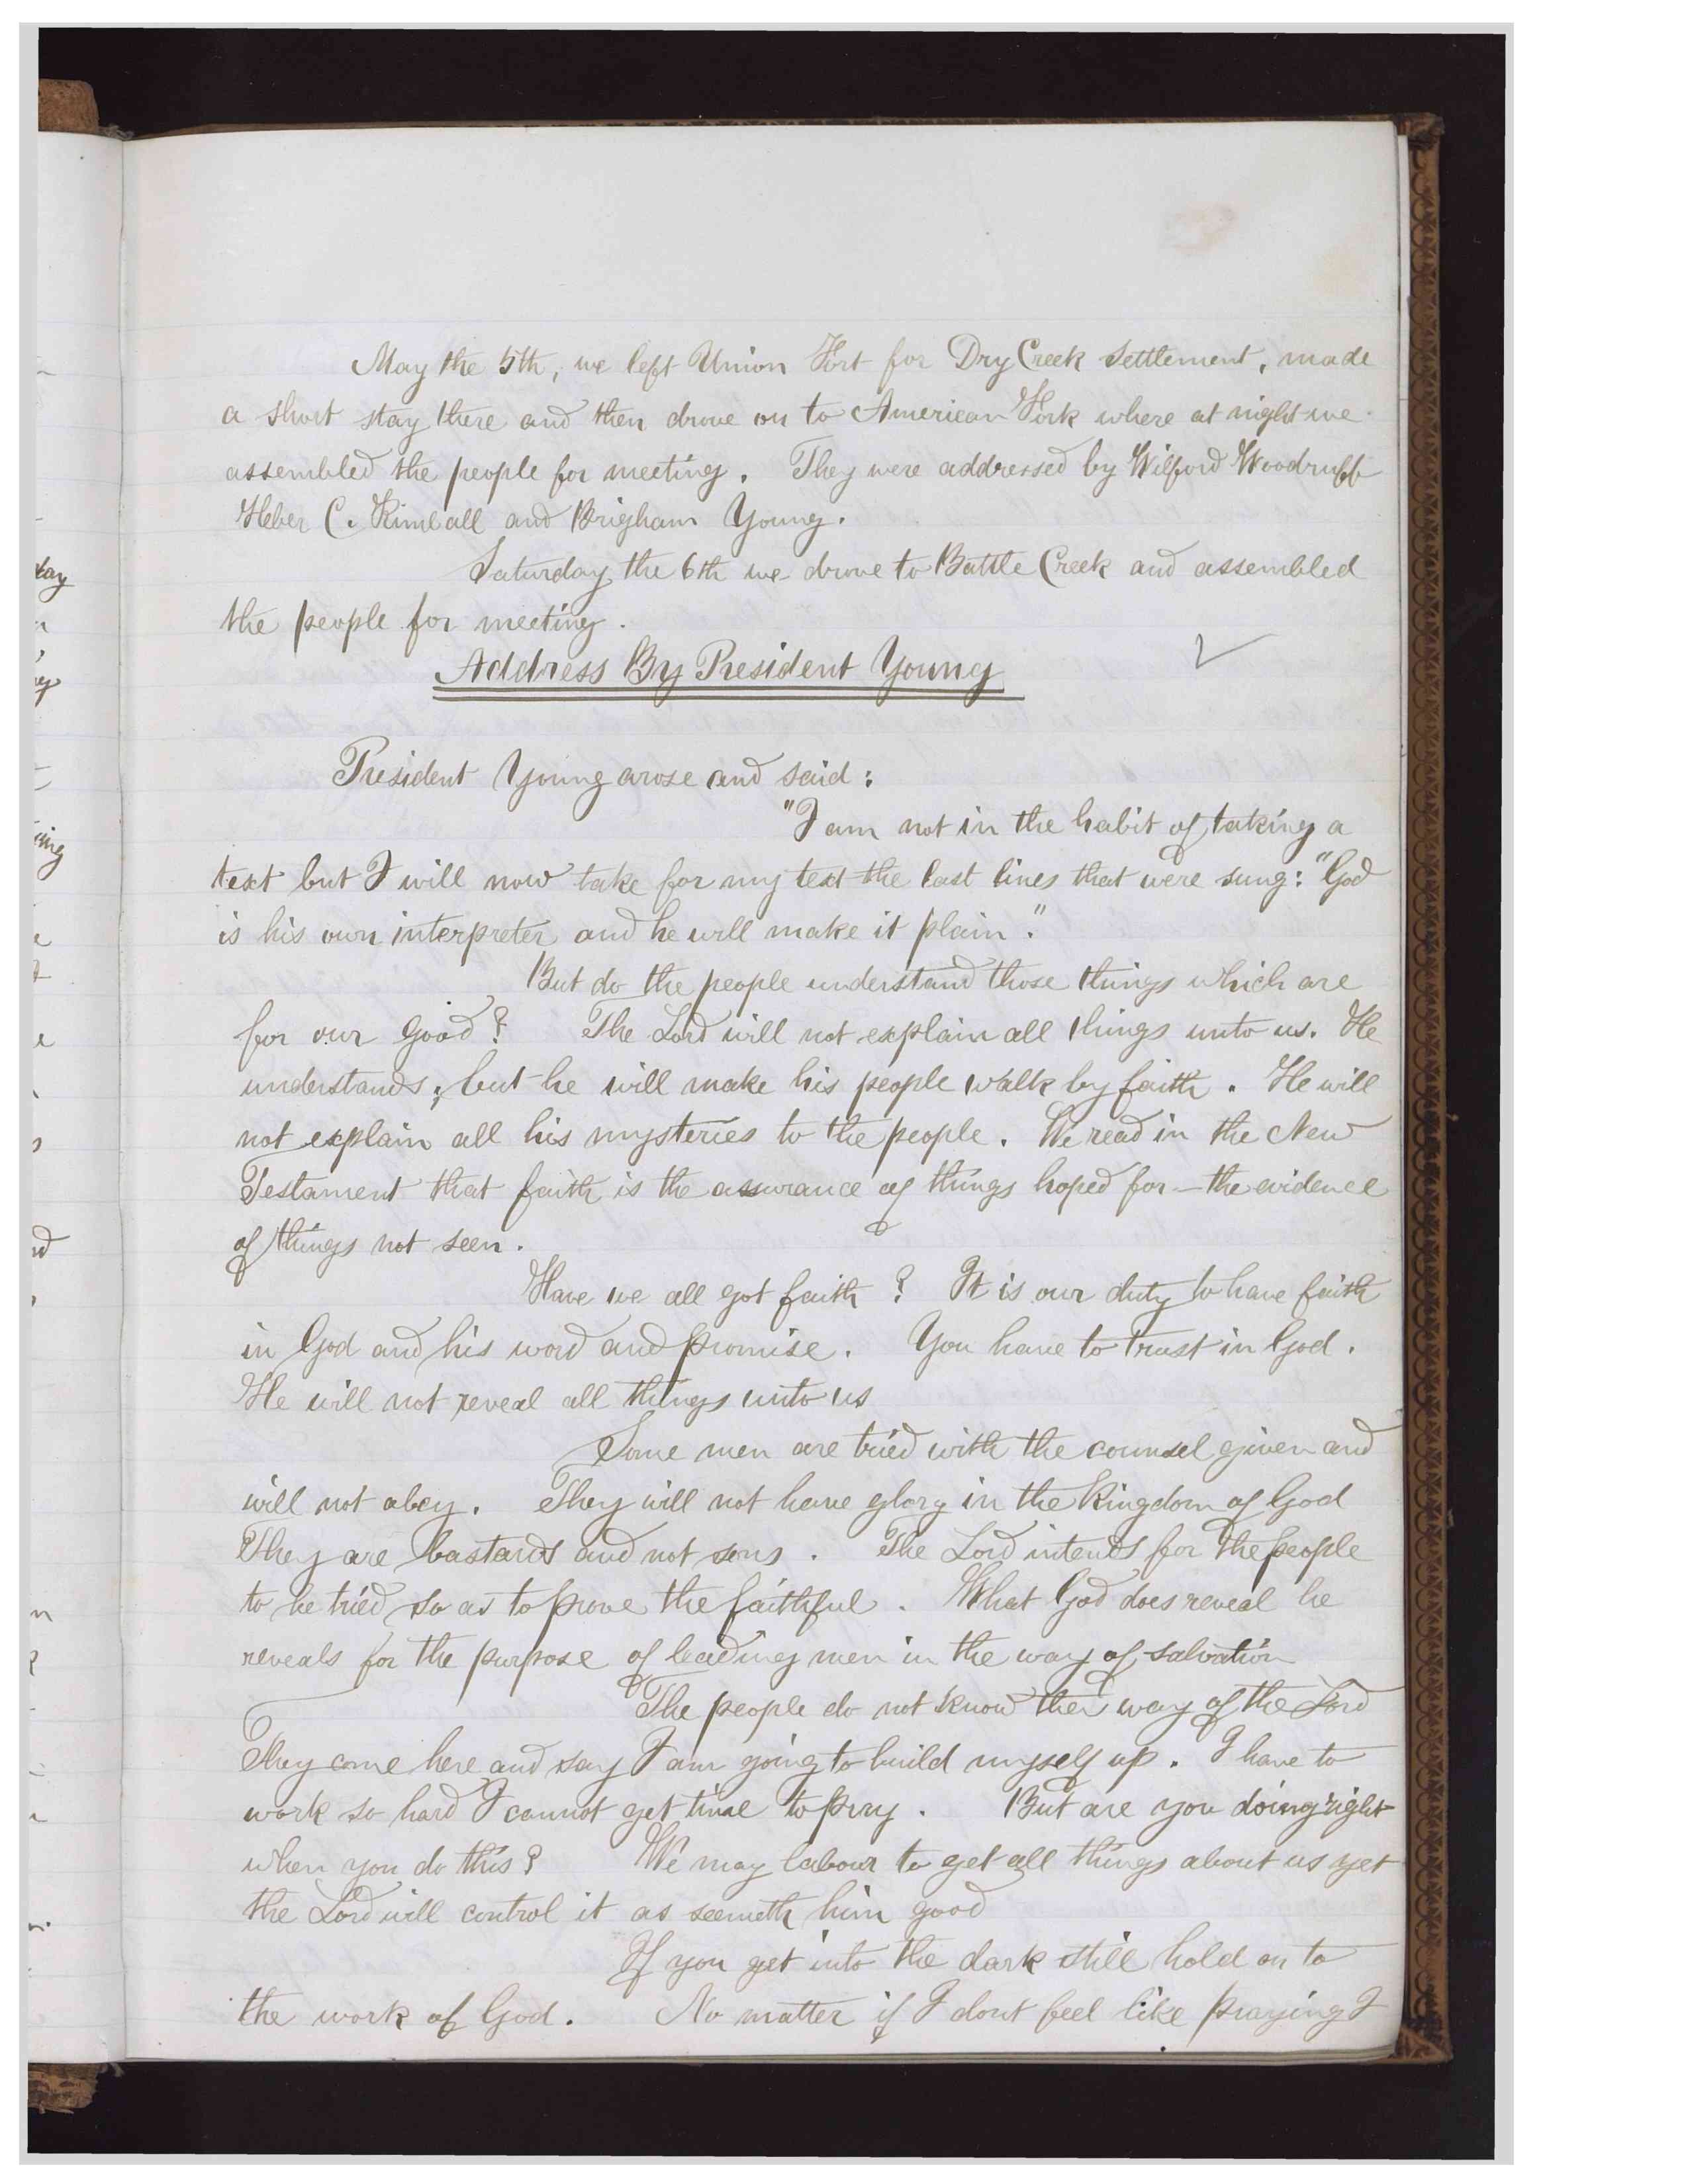 May the 5th, we left Union Fort for Dry Creek settlement, made
a short stay there and then drove on to American Fork where at night we
assembled the people for meeting. They were addressed by Wilford Woodruff
Heber C. Kimball and Brigham Young.
Saturday the 6th we drove to Battle Creek and assembled
the people for meeting.
Address By President Young
President Young arose and said:
"I am not in the habit of taking a
text but I will now take for my text the last lines that were sung: "God
is his own interpreter and he will make it plain."
But do the people understand those things which are
for our good? The Lord will not explain all things unto us. He
understands, but he will make his people walk by faith. He will
not explain all his mysteries to the people. We read in the New
Testament that faith is the assurance of things hoped for — the evidence
of things not seen.
Have we all got faith? It is our duty to have faith
in God and his word and promise. You have to trust in God.
He will not reveal all things unto us
Some men are tried with the counsel given and
will not obey. They will not have glory in the Kingdom of God
They are bastards and not sons. The Lord intends for the people
to be tried so as to prove the faithful. What God does reveal he
reveals for the purpose of leading men in the way of salvation
The people do not know the way of the Lord
They come here and say I am going to build myself up. I have to
work so hard I cannot get time to pray. But are you doing right
when you do this? We may labour to get all things about us yet
the Lord will control it as seemeth him good
If you get into the dark still hold on to
the work of God. No matter if I dont feel like praying I